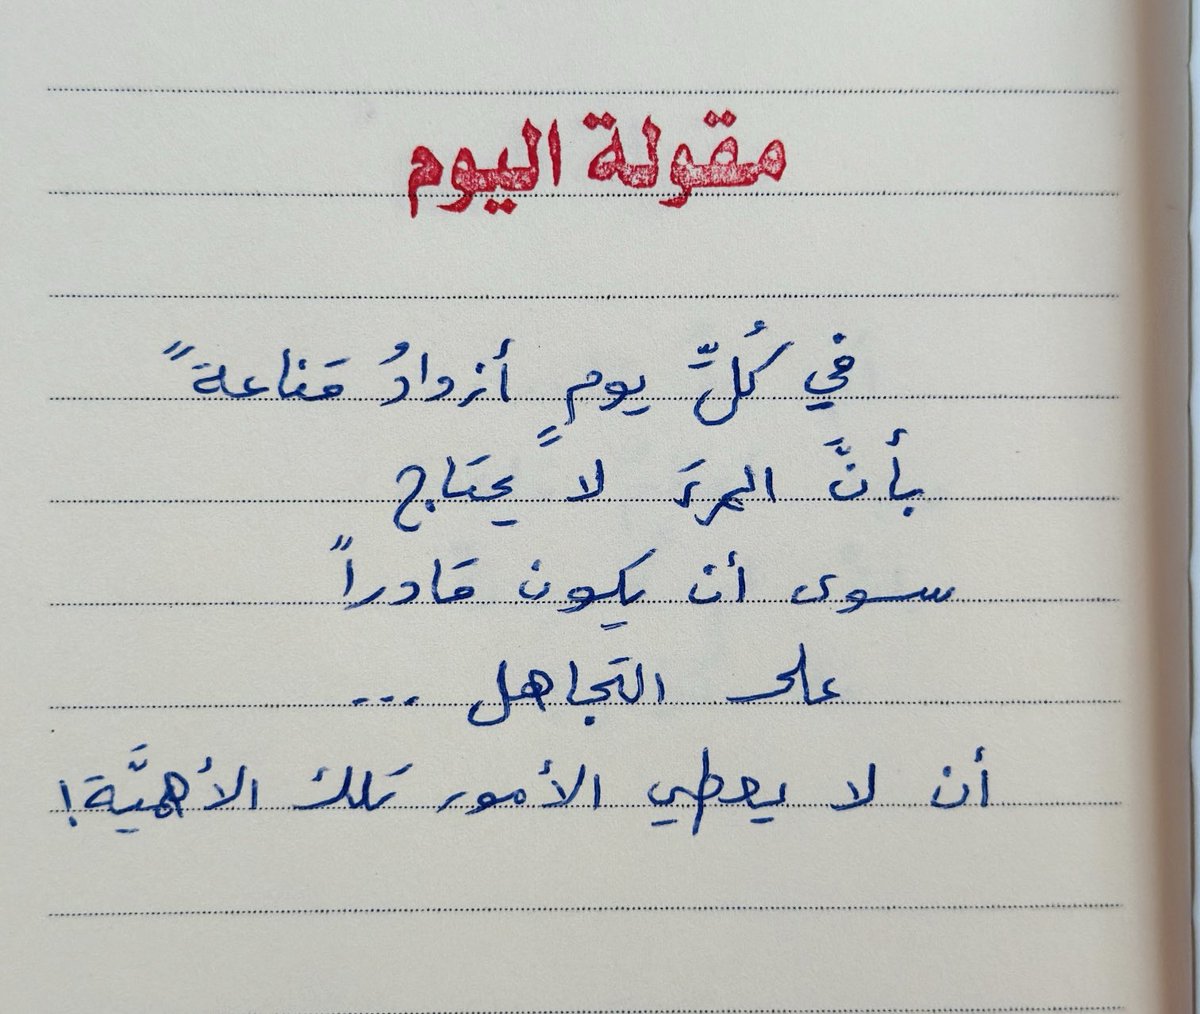 مقولة اليوم
في كُلِّ يومٍ أزدادُ قناعةً
بأنَّ المرءَ لا يحتاج
سوى أن يكون قادراً
على التجاهل ...
أن لا يعطي الأمور تلك الأهميَّة!